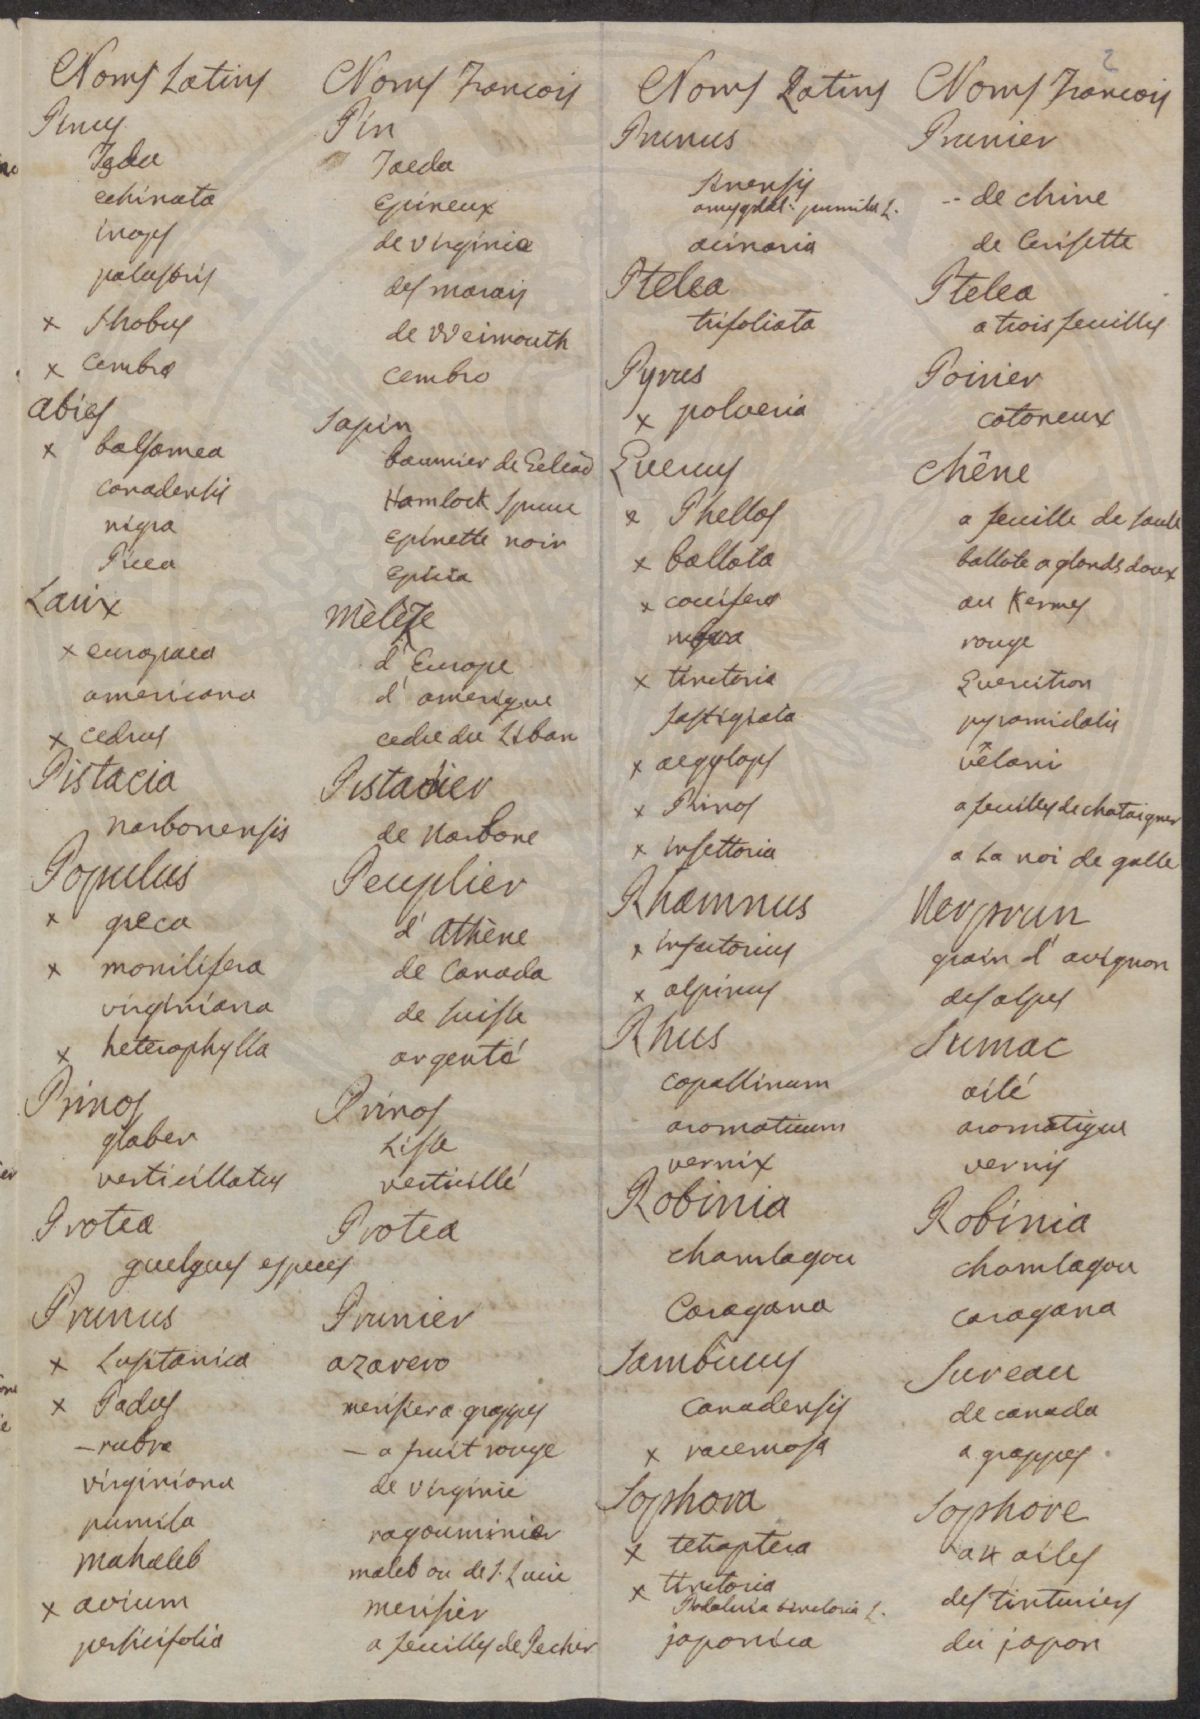 2
Noms Latins Noms Francois
Pinus Pin
Taeda Taeda
echinata epineux
inops de virginie
palustris des marais
x strobus de Weimouth
x cembra cembro
abies sapin
x balsamea baumier de Gelead
canadensis Hamlock Spruce
nigra epinette noir
Picea epicia
Larix Mèlèze
x europaea d'Europe
americana d'amerique
x cedrus cedre du Liban
Pistacia Pistacier
narbonensis de Narbone
Populus Peuplier
x greca d'Athène
x monilifera de Canada
virginiana de suisse
x heterophylla argenté
Prinos Prinos
glaber Lisse
verticillatus verticillé
Protea Protea
quelques especes
Prunus Prunier
x Lusitanica azarero
x Padus merisier a grappes
— rubra — a fruit rouge
virginiana de virginie
pumila ragouminier
mahaleb maleb ou de S. Lucie
x avium merisier
persicifolia a feuilles de Pecher
Noms Latins Noms Francois
Prunus Prunier
sinensis -- de chine
amygdal. pumila L.
acinaria de Cerisette
Ptelea Ptelea
trifoliata a trois feuilles
Pyrus Poirier
x polveria cotoneux
Quercus chêne
x Phellos a feuille de saule
x ballota ballote a glands doux
x coccifera au Kermes
rubra rouge
x tinctoria Quercitron
fastigiata pyramidalis
x aegylops vêlani
x Prinos a feuilles de chataigner
x infettoria a La noi de galle
Rhamnus Nerprun
x infectorius grain d'avignon
x alpinus des alpes
Rhus Sumac
copallinum ailé
aromaticum aromatique
vernix vernis
Robinia Robinia
chamlagou chamlagou
Caragana caragana
Sambucus Sureau
canadensis de canada
x racemosa a grappes.
Sophora Sophore
x tetraptera a 4 ailes
x tinctoria des tinturiers
Podaliria tinctoria L.
japonica du japon